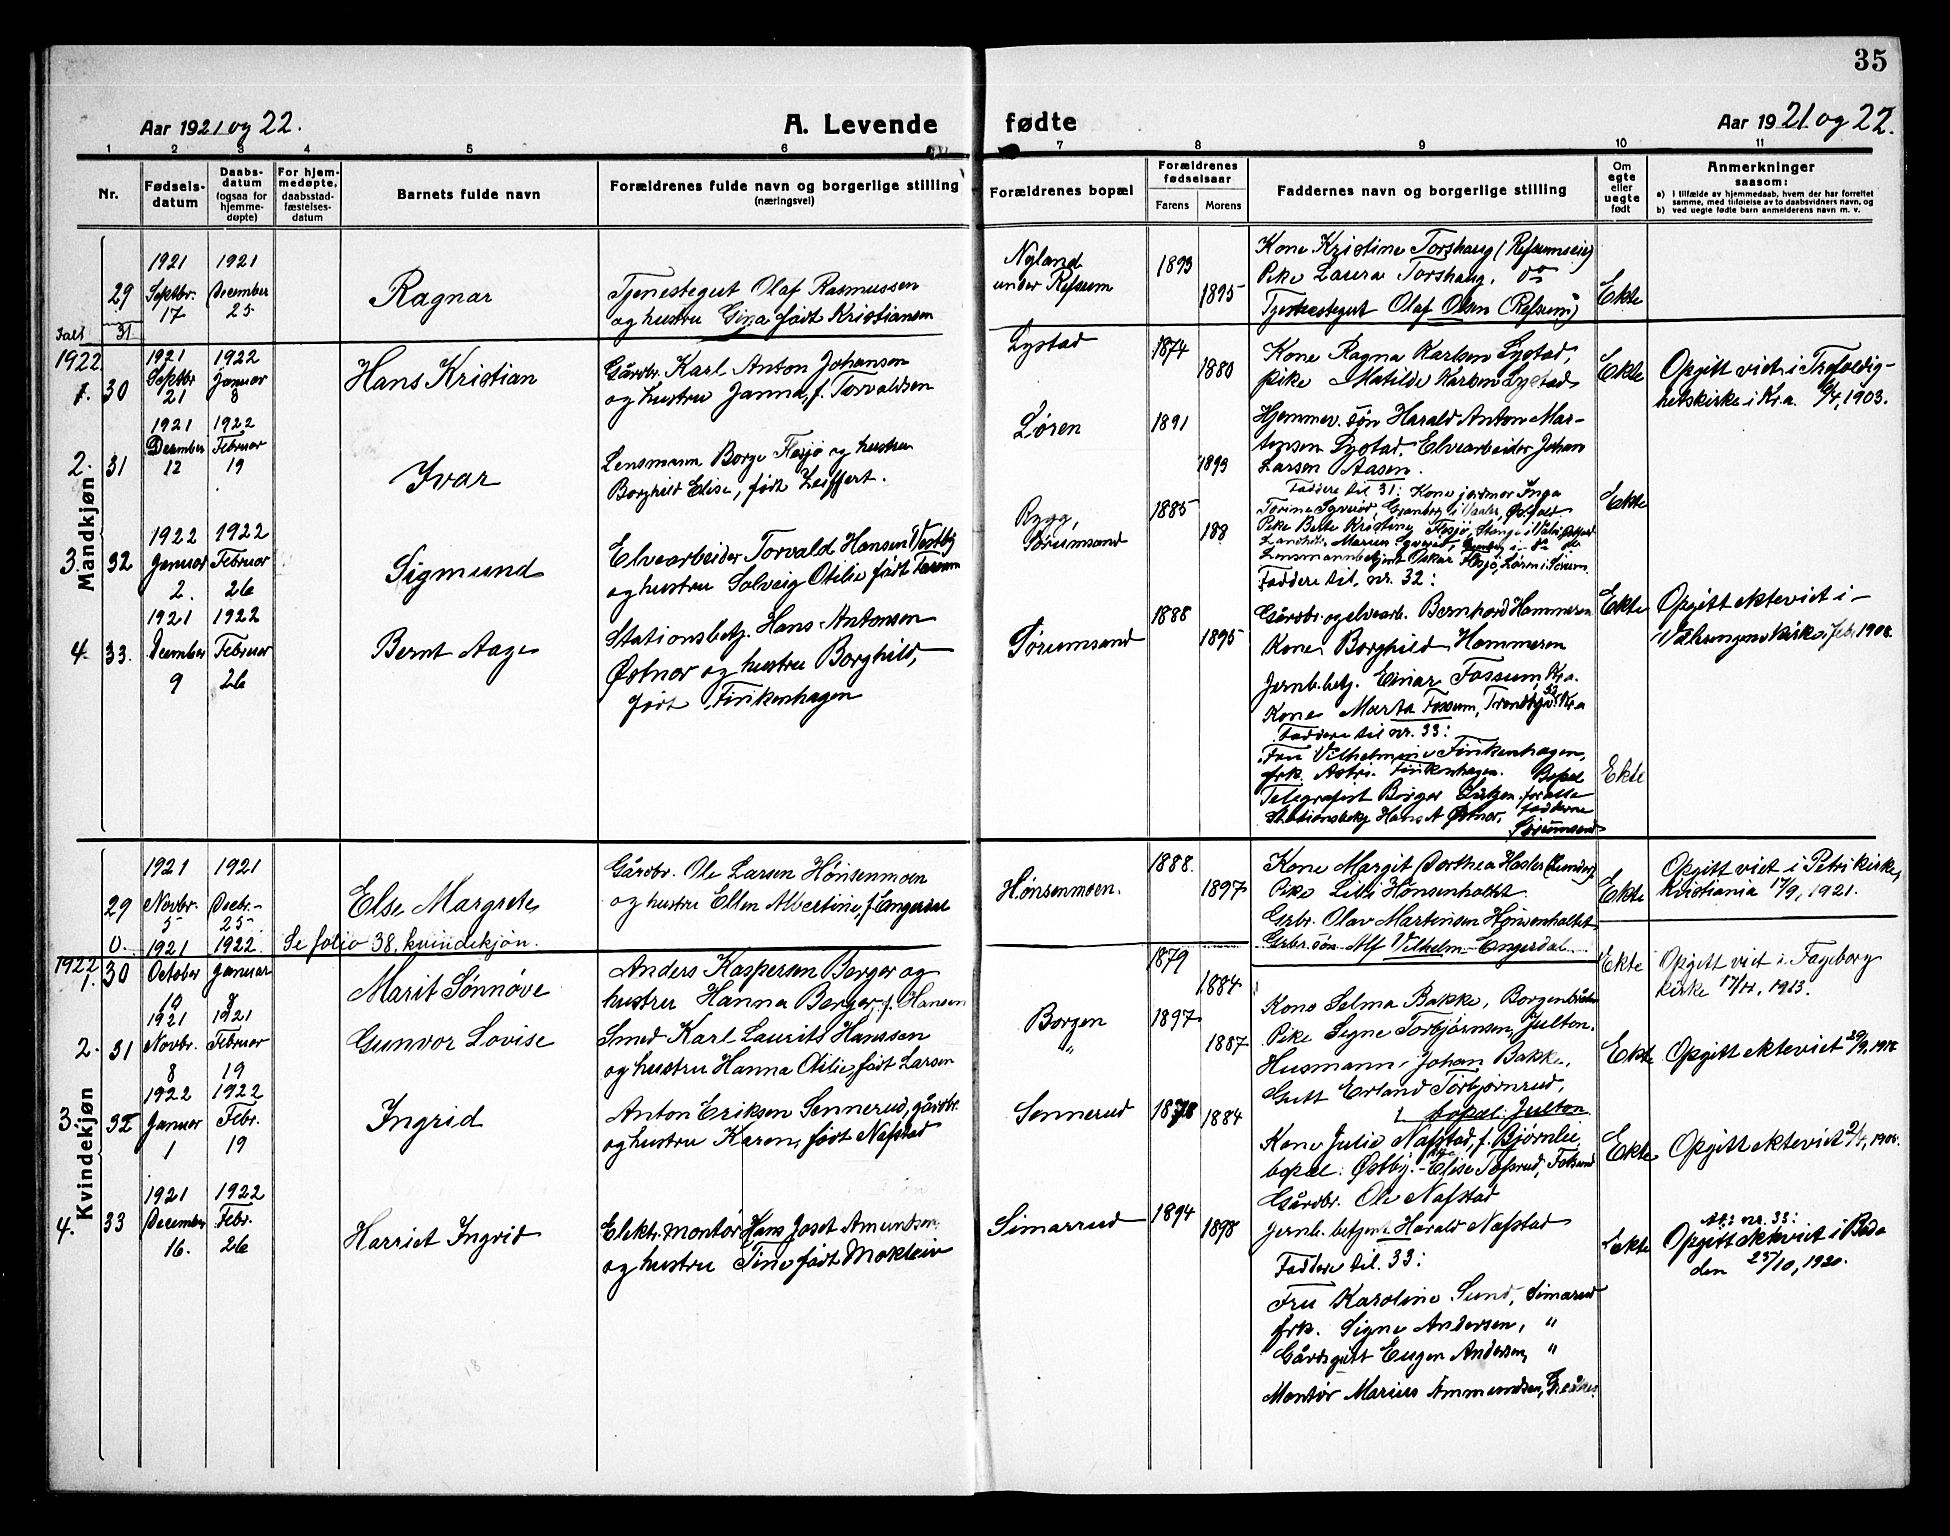 35
Aar 1921 og 22.
A. Levende
fødte
Aar 1921 og 22.
1 2 3 4 5 6 7 8 9 10 11
Nr.
Fødsels-
datum
Daabs-
datum
(ogsaa for
hjemme-
døpte)
For hjem-
medøpte,
daabsstad-
fæstelses-
datum
Barnets fulde navn
Forældrenes fulde navn og borgerlige stilling
(næringsvei)
Forældrenes bopæl
Forældrenes
fødselsaar
Farens Morens
Faddernes navn og borgerlige stilling
Om
egte
eller
uegte
født
Anmerkninger
saasom:
a) I tilfælde av hjemmedaab, hvem der har forrettet
samme, med tilføielse av to daabsvidners navn, og
b) ved uegte fødte barn anmelderens navn m. v.
Mandkjøn
29
1921
Septbr.
17
1921
December
25
Ragnar
Tjenestegut Olaf Rasmussen
og hustru Gina født Kristiansen
Nyland
under Refsum
1893
1895
Kone Kristine Torshaug (Refsum
Pike Laura Torshaug, do
Tjenestegut Olaf Olsen (Refsum)
Ekte
Ialt 31
1922
1. 30
1921
Septbr
21
1922
Januar
8
Hans Kristian
Gårdbr. Karl Anton Johansen
og hustru Janna, f. Torvaldsen
Lystad
1874
1880
Kone Ragna Karlsen Lystad,
pike Matilde Karlsen Lystad
Hjemmev. søn Harald Anton Mar-
tinsen Lystad. Elvearbeider Johan
Larsen Aasen.
Ekte
Opgitt viet i Trefoldig-
hetskirke i Kr.a. 1903.
2. 31
1921
December
12
1922
Februar
19
Ivar
Lensmann Borge Flesjø og hustru
Borghild Elise, født Leiffert.
Løren
1891
1893
Faddere til 31: Kone jordmor Inga
Pike Berte Kristine Flesjø,
Lensmannbetjent Oskar Flesjø, Løren i Sørum.
Ekte
3. 32
1922
Januar
2.
1922
Februar
26
Sigmund
Elvearbeider Torvald Hansen Vestby
og hustru Solveig Otilie født
Rygg,
Sørumsand
1885
188
Faddere til nr. 32:
Gårdbr. og elvearb. Bernhard Hammeren
Kone Borghild Hammeren
Jernb.betj. Einar Fossum, Kr.a.
Kone Marta Fossum, Kr.a
Ekte
Opgitt ekteviet i
Vålerengen kirke i febr. 1908.
4. 33.
1921
December
9
1922
Februar
26
Bernt Aage
Stationsbetj. Hans Antonsen
Østnor og hustru Borghild,
født Finkenhagen
Sørumsand
1888
1895
Faddere til nr. 33:
Fru Vilhelmine Finkenhagen,
frk. Astri Finkenhagen.
Telegrafist Borger
Stationsbetj Hans A Østnor.
Bopæl
for alle
fadderne
Sørumsand
Ekte
Kvindekjøn
29
1921
Novbr.
5
1921
Decbr.
25.
Else Margrete
Gårdbr. Ole Larsen Hønsenmoen
og hustru Ellen Albertine, f. Engerdal
Hønsenmoen.
1888.
1897
Kone Margit Dorthea Hasler (Lunder),
Pike Lilli Hønsenhaldet.
Grbr. Olav Martinsen Hønsenhaldet
Grbr. søn Alf Vilhelm Engerdal
Ekte
Opgitt viet i Petri kirke,
Kristiania 17/9, 1921.
0.
Se folio 38, kvindekjøn.
1922
1. 30
1921
October
1922
Januar
8
Marit Sønnøve
Anders Kaspersen Berger og
hustru Hanna Berger, f. Hansen
1879
1884
Ekte
Opgitt viet i Fageborg
kirke 1913.
2. 31
1921
Novbr.
8
1921
Februar
19
Gunvor Lovise
Smed Karl Laurits Hanssen
og hustru Hanna Otilie, født Larsen
Borgen
"
1897
1887
Kone Selma Bakke,
Pike Signe Torbjørnsen, Julton.
Husmann Johan Bakke,
Gutt Erland Torbjørnrud,
bopæl: Julton
Ekte
Opgitt ekteviet
3. 32
1922
Januar
1
1922
Febr.
19
Ingrid
Anton Eriksen Sennerud, gårdbr.
og hustru Karen, født Nafstad
Sennerud
1878
1884
Kone Julie Nafstad, f. Bjørnlie,
bopæl: Østby.
Gårdbr. Ole Nafstad
Jernb. betjent Harald Nafstad
Ekte
Opgitt ekteviet
4. 33
1921
December
16.
1922
Febr.
26
Harriet Ingrid
Elektr. montør Hans Josef Amundsen
og hustru Tine født Moklein
Simarrud
1894
1898
Faddere til 33:
Fru Karoline Sund, Simarud
frk. Signe Andersen, "
Gårdsgutt Eugen Andersen, "
Montør Marius Ammundsen,
Ekte
nr. 33:
Opgitt ekteviet i Bodø
den 25/10, 1920.